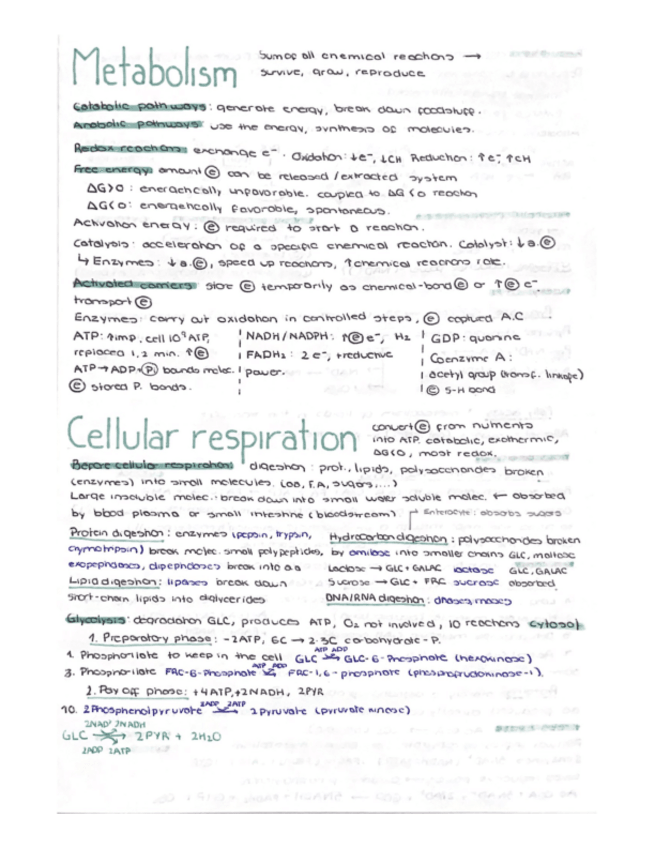 Metabolism
Sum of all chemical reactions →
survive, grow, reproduce
Catabolic pathways: generate energy, break down foodstuff.
Anabolic pathways: use the energy, synthesis of molecules.
Redox reactions: exchange e⁻. Oxidation: ↓e⁻, ↓CH Reduction: ↑e⁻, ↑CH
Free energy: amount ⓔ can be released/extracted system
ΔG>0: energetically unfavorable. coupled to ΔG<0 reaction
ΔG<0: energetically favorable, spontaneous.
Activation energy: ⓔ required to start a reaction.
Catalysis: acceleration of a specific chemical reaction. Catalyst: ↓a.ⓔ
↳ Enzymes: ↓a.ⓔ, speed up reactions, ↑chemical reactions rate.
Activated carriers: store ⓔ temporarily as chemical-bond ⓔ or ↑ⓔ e⁻
transport ⓔ
Enzymes: carry out oxidation in controlled steps, ⓔ captured A.C
ATP: ↑imp. cell 10⁹ ATP,
replaced 1,2 min. ↑ⓔ
ATP→ADP+Ⓟ bounds molec.
ⓔ stored P. bonds.
NADH/NADPH: ↑ⓔ e⁻, H₂
FADH₂: 2e⁻, ↑reductive
power.
GDP: guanine
Coenzyme A:
acetyl group (transf. linkage)
ⓔ S-H bond
Cellular respiration
convert ⓔ from nutrients
into ATP. catabolic, exothermic,
ΔG<0, most redox.
Before cellular respiration: digestion: prot., lipids, polysaccharides broken
(enzymes) into small molecules. (aa, F.A, sugars,...)
Large insoluble molec. break down into small water soluble molec. ← absorbed
by blood plasma or small intestine (bloodstream) Enterocyte: absorbs sugars
Protein digestion: enzymes (pepsin, trypsin,
chymotrypsin) break molec. small polypeptides,
exopeptidases, dipeptidases break into aa
Lipid digestion: lipases break down
short-chain lipids into diglycerides
Hydrocarbon digestion: polysaccharides broken
by amilase into smaller chains GLC, maltose
Lactose → GLC + GALAC lactase GLC, GALAC
Sucrose → GLC + FRC sucrase absorbed
DNA/RNA digestion: dnases, rnases
Glycolysis: degradation GLC, produces ATP, O₂ not involved, 10 reactions cytosol
1. Preparatory phase: -2ATP, 6C → 2·3C carbohydrate-P.
1. Phosphorilate to keep in the cell GLC ATP ADP → GLC-6-Phosphate (hexokinase)
3. Phosphorilate FRC-6-Phosphate ATP ADP → FRC-1,6-phosphate (phosphofructokinase-1).
2. Pay off phase: +4ATP, +2NADH, 2PYR
10. 2Phosphoenolpyruvate 2ADP 2ATP → 2pyruvate (pyruvate kinase)
2NAD⁺ 2NADH
GLC → 2PYR + 2H₂O
2ADP 2ATP